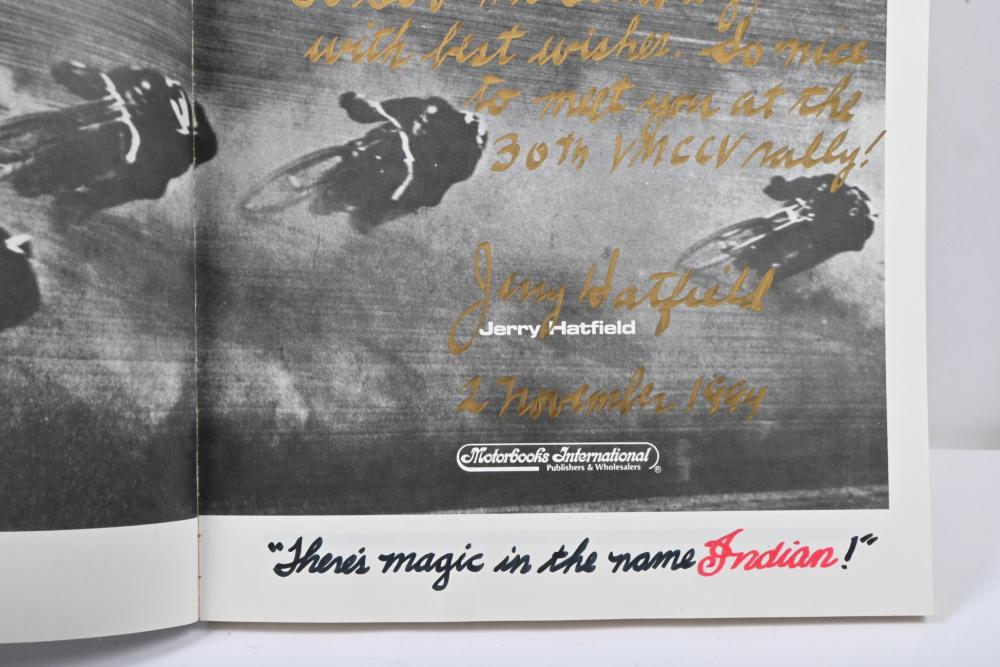 with best wishes. So nice
to meet you at the
30th VMCCV rally!
Jerry Hatfield
Jerry Hatfield
2 November 1994
Motorbooks International
Publishers & Wholesalers ®
"There's magic in the name Indian!"